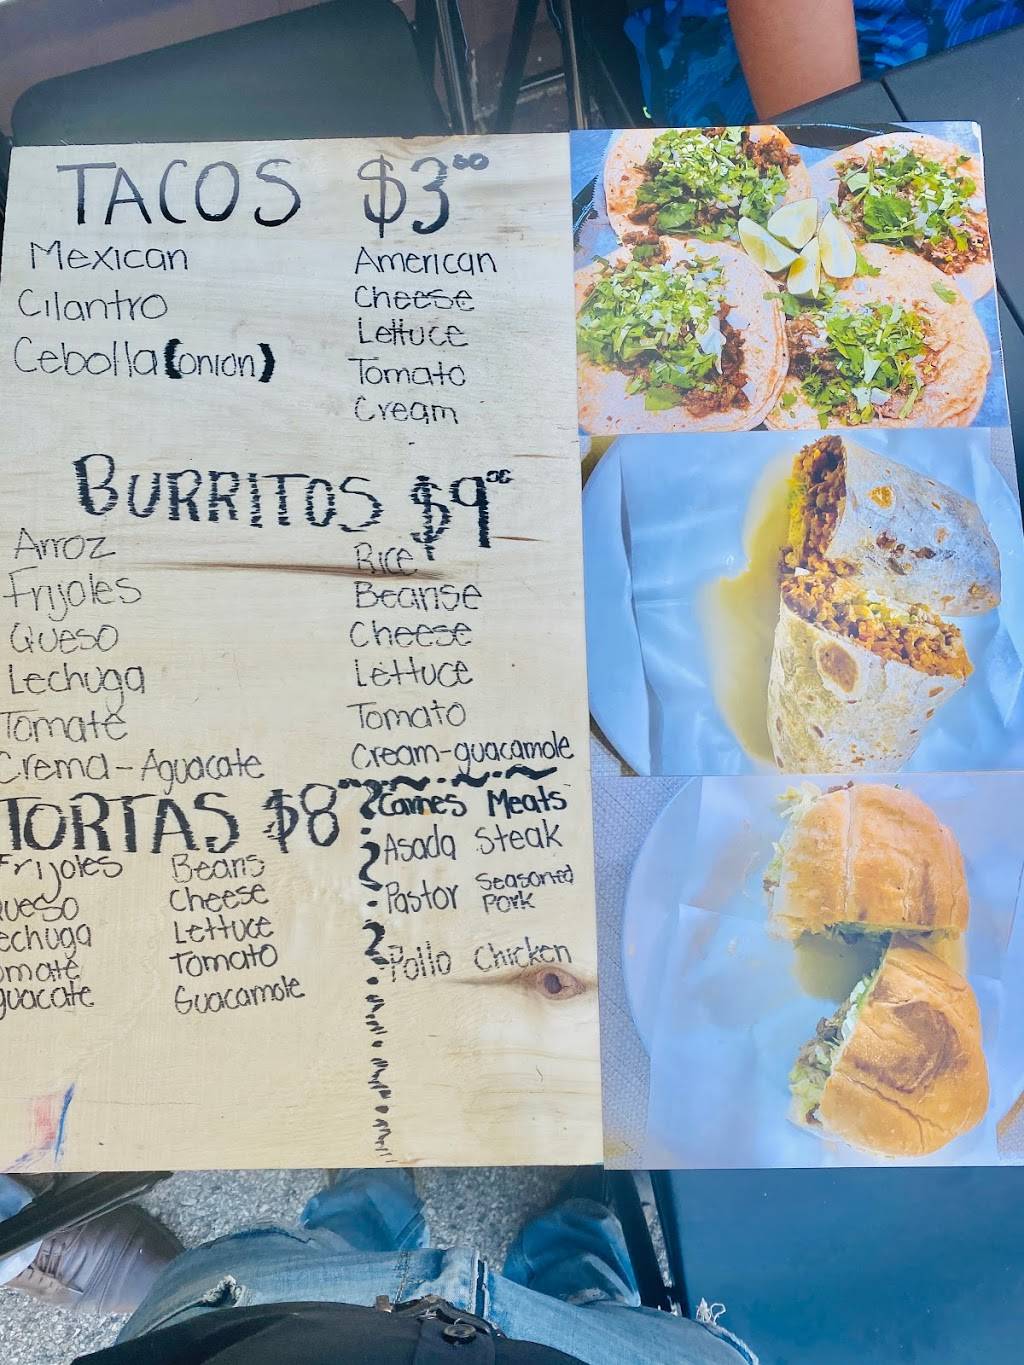 TACOS $3.00
Mexican American
Cilantro Cheese
Lettuce
Cebolla (onion) Tomato
Cream
BURRITOS $9.00
Arroz Rice
Frijoles Beanse
Queso Cheese
Lechuga Lettuce
Tomate Tomato
Crema-Aguacate Cream-guacamole
TORTAS $8.00
Carnes Meats
Frijoles Beans
ueso Cheese
echuga Lettuce
omate Tomato
guacate Guacamole
Asada Steak
Pastor Seasoned Pork
Pollo Chicken